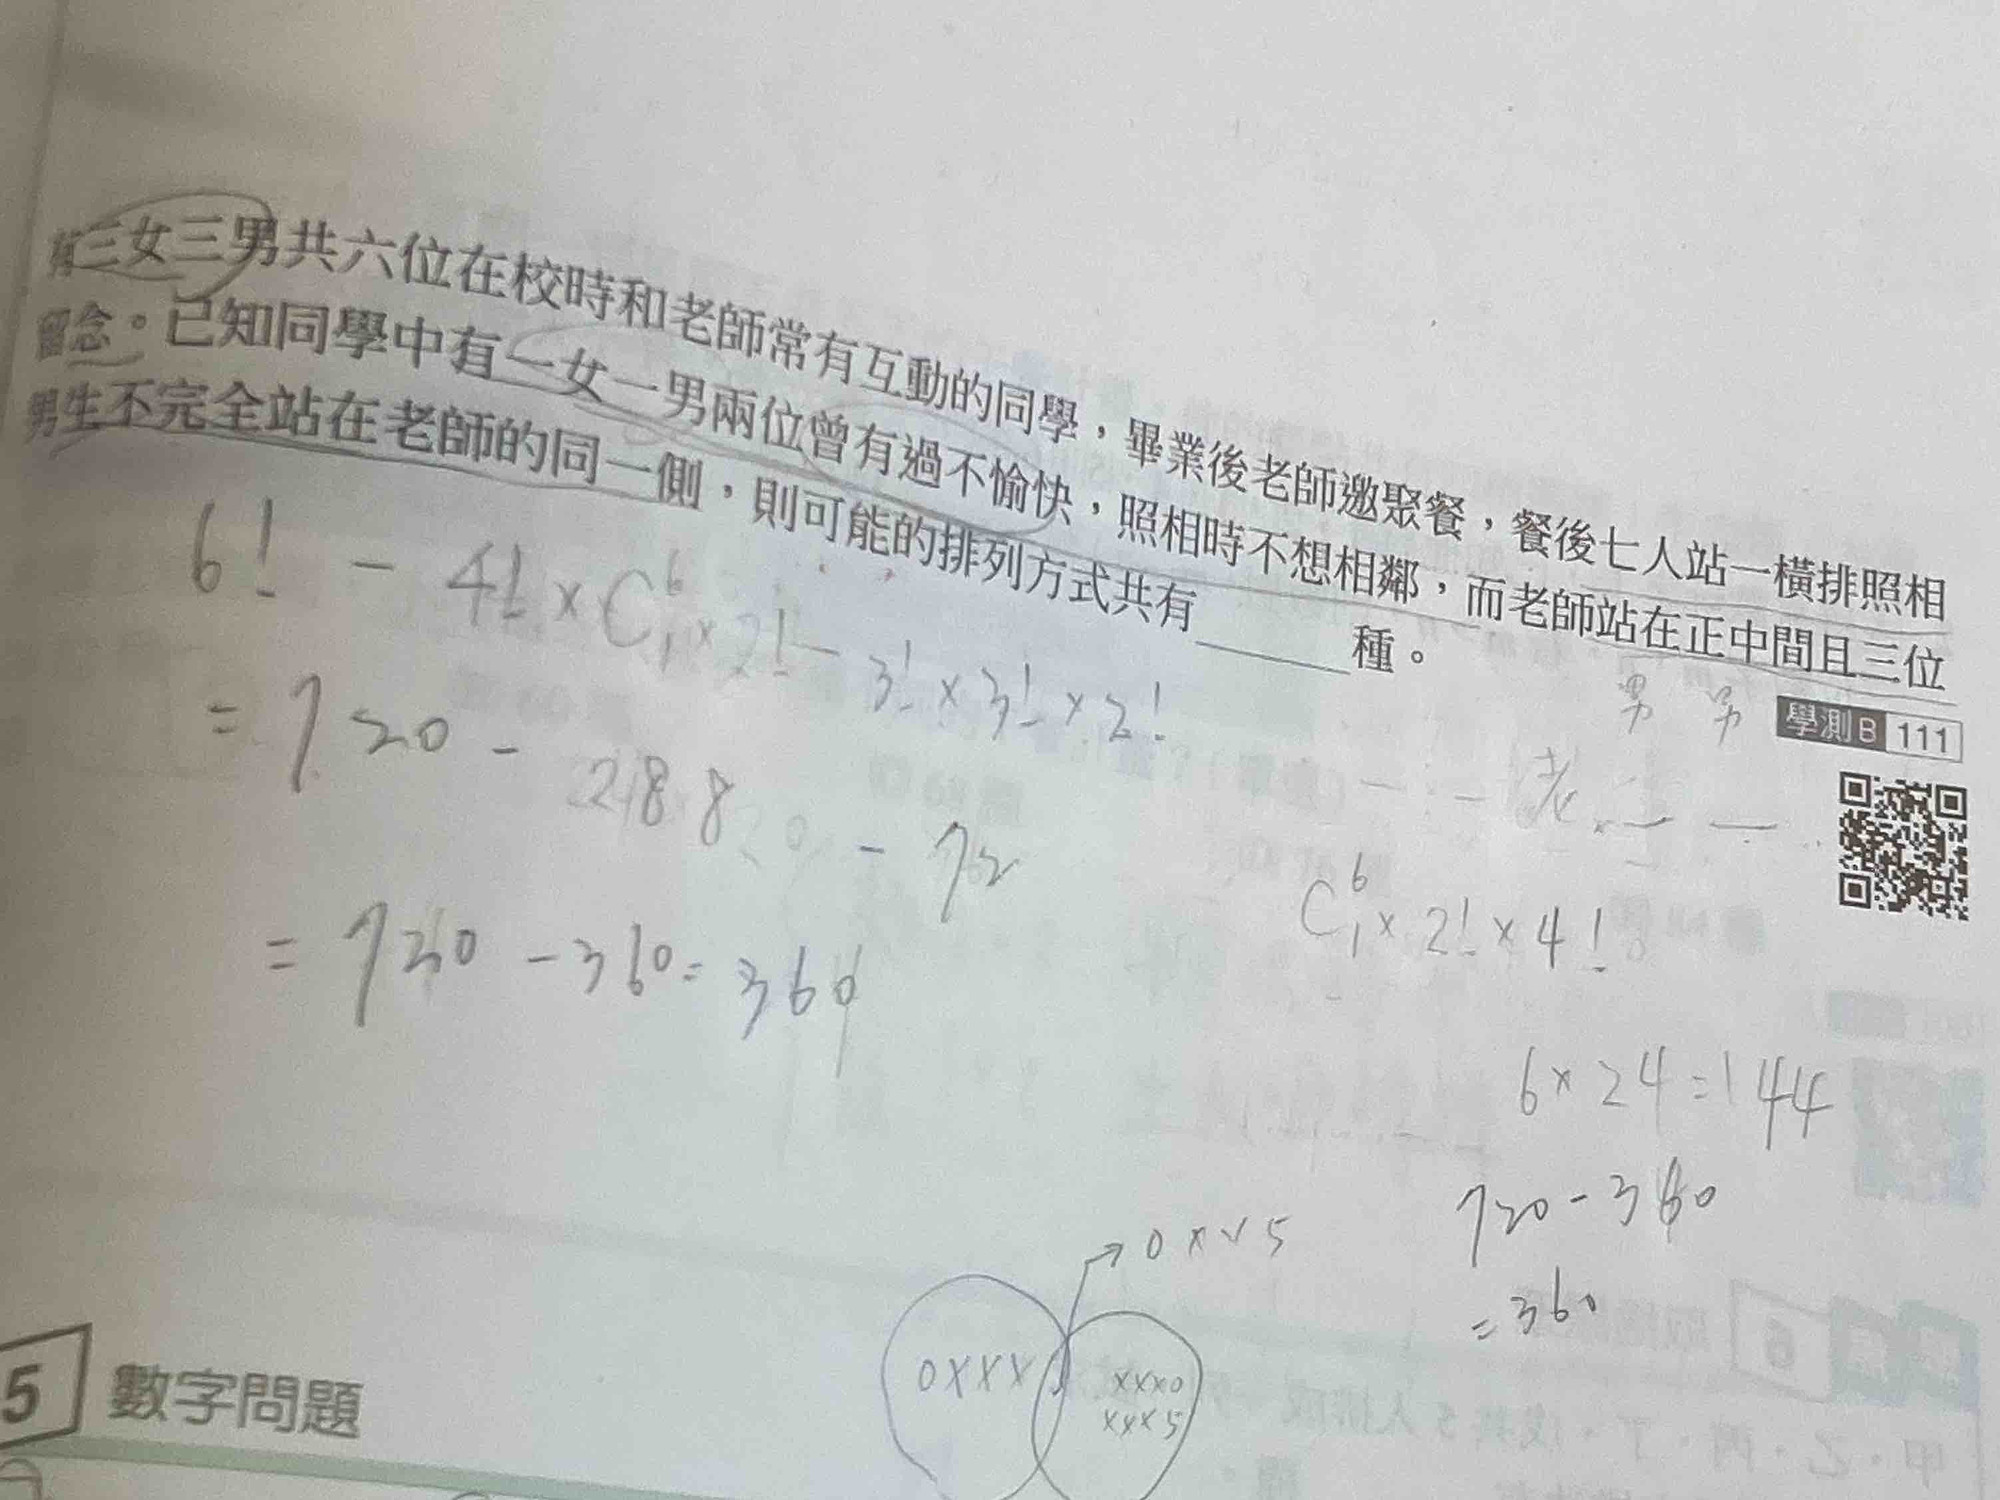 有三女三男共六位在校時和老師常有互動的同學，畢業後老師邀聚餐，餐後七人站一橫排照相
留念。已知同學中有一女一男兩位曾有過不愉快，照相時不想相鄰，而老師站在正中間且三位
男生不完全站在老師的同一側，則可能的排列方式共有______種。
學測B 111
6! - 4! × C⁶₁ × 2! - 3! × 3! × 2!
= 720 - 288 - 72
= 720 - 360 = 360
男 男
老
C⁶₁ × 2! × 4!
6 × 24 = 144
720 - 360
= 360
0XXX
XXX0
XXX5
5 數字問題
6